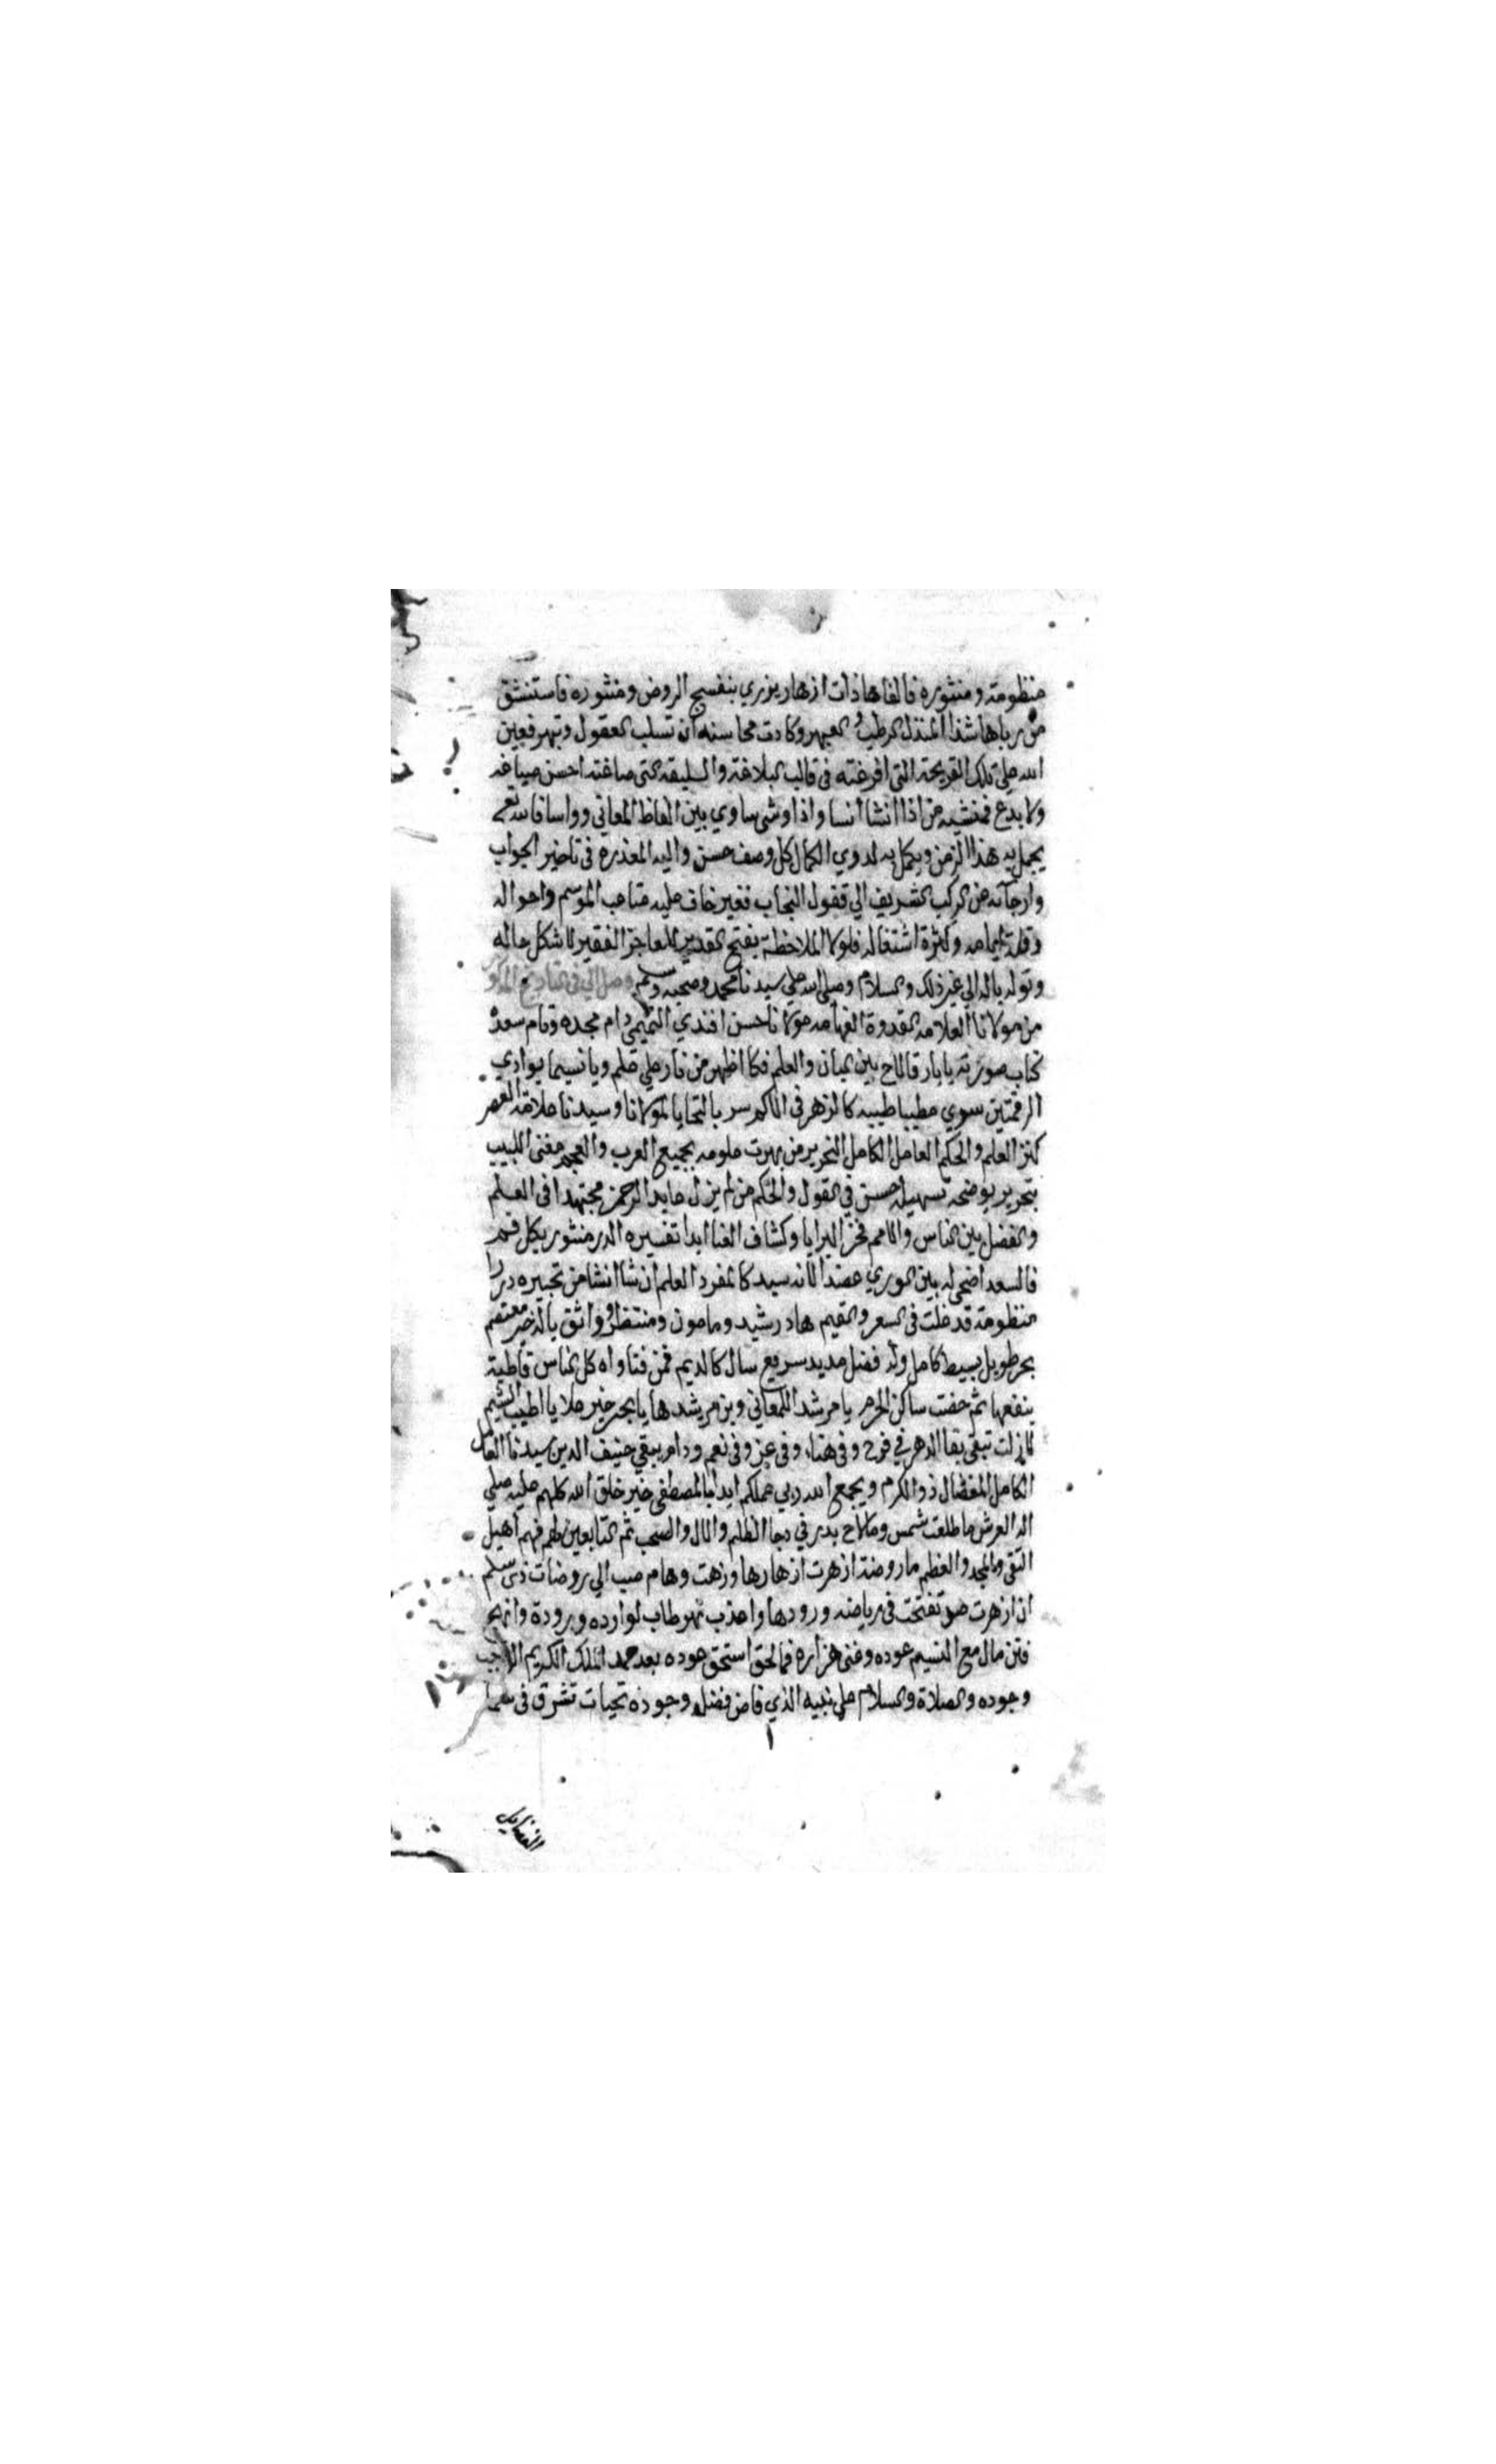 منظومة ومنثوره فالفاها ذات ازهار يزري بنفسج الروض ومنثوره فاستنشق
من رياها شذا المندل الرطب و العبهر وكادت محاسنه ان تسلب العقول وتبهر فعين
الله علي تلك القريحة التي افرغته في قالب البلاغة والسليقة التي صاغته احسن صياغه
ولا بدع فمنشيه من اذا انشا انسا واذا وشي ساوي بين الفاظ المعاني وواسا فالله تعالي
يجمل به هذا الزمن ويكمل به لدوي الكمال كل وصف حسن واليه المعذرة في تاخير الجواب
وارجائه عن الركب الشريف الي قفول النجاب فغير خاف عليه متاعب الموسم واحواله
وقلة ايامه وكثرة اشتغاله فلولا الملاحظة بفتح القدير للعاجز الفقير لاشكل حاله
وتوله باله الي غير ذلك والسلام وصلي الله علي سيدنا محمد وصحبه وسلم وصل الي في التاريخ المذكور
من مولانا العلامه القدوة الفهامه مولانا حسن افندي التميمي دام مجده وقام سعده
كتاب صورته يا بارقا لاح بين البان والعلم فكا اظهر من نار علي علم ويا نسيما بوادي
الرقمتين سوي مطيبا طيبه كالزهر في الاكم سر بالتحايا لمولانا وسيدنا علامة العصر
كنز العلم والحكم العامل الكامل النحرير من بهرت علومه بجميع العرب والعجم مغني اللبيب
بتحرير يوضحه تسهيله حسن في القول والحكم من لم يزل عابد الرحمن مجتهدا في العلم
والفضل بين الناس والامم فخر البرايا وكشاف العنا ابدا تفسيره الدر منثور بكل فم
فالسعد اضحي له بين الوري عضدا لانه سيد كالمفرد العلم ان شا انشا من تحبيره دررا
منظومة قد غلت في السعر والقيم هاد رشيد ومامون ومنتظر وواثق بالاخير معتصم
بحر طويل بسيط كامل وله فضل مديد سريع سال كالديم فمن فتاواه كل الناس قاطبة
ينفعها ثم خفت ساكن الحرم يا مرشدا للمعاني وبن مرشدها يا بحر خير علا يا اطيب الشيم
لازلت تبقي بقا الدهر في فرح وفي هناء وفي عز وفي نعم ودام يبقي حنيف الدين سيدنا العامل
الكامل المفضال ذو الكرم ويجمع الله ربي شملكم ابدا بالمصطفي خير خلق الله كلهم عليه صلي
اله العرش ما طلعت شمس وما لاح بدر في دجا الظلم والال والصحب ثم التابعين لهم فهم اهيل
التقي والمجد والعظم ما روضة ازهرت ازهارها وزهت وهام صب الي روضات ذي سلم
ان ازهرت تفتحت في رياضه ورودها واعذب نهر طاب لوارده وبرودة وابهج
فنن مال مع النسيم عوده وغني هزاره فالحق استحق عوده بعد حمد الملك الكريم الواجب
وجوده والصلاة والسلام علي نبيه الذي فاض فضله وجوده تحيات تشرق في سما
الفضايل